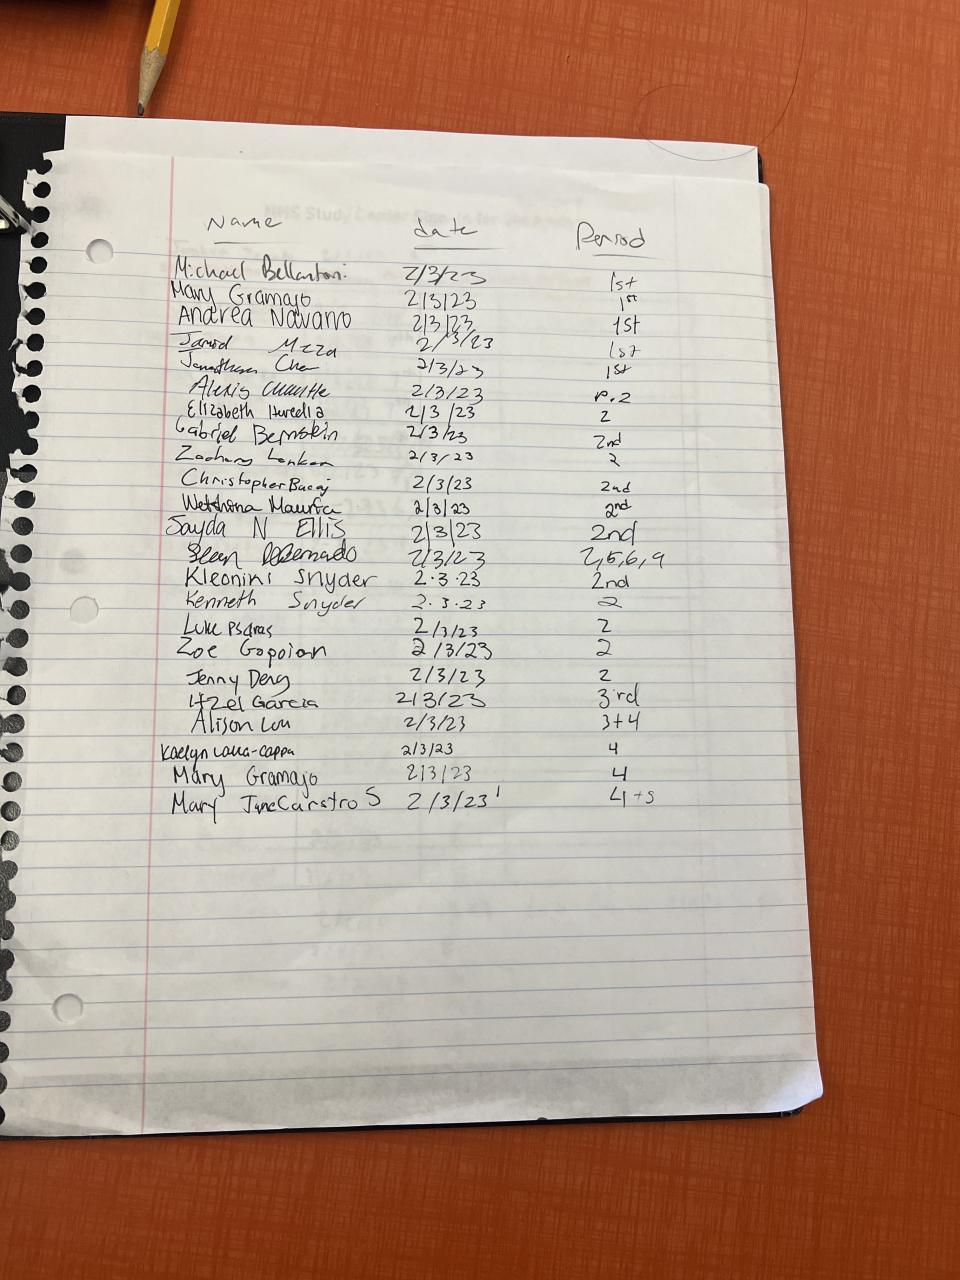 Name date Period
Michael Bellantoni 2/3/23 1st
Mary Gramajo 2/3/23 1st
Andrea Navarro 2/3/23 1st
Jarod 2/3/23 1st
Jonathan 2/3/23 1st
Alexis 2/3/23 P.2
Elizabeth Heredia 2/3/23 2
Gabriel Bernstein 2/3/23 2nd
Zachary 2/3/23 2
Christopher Bacaj 2/3/23 2nd
2/3/23 2nd
Sayda N Ellis 2/3/23 2nd
Sean 2/3/23 2,5,6,9
Kleonini Snyder 2.3.23 2nd
Kenneth Snyder 2.3.23 2
Luke Psaras 2/3/23 2
Zoe Gopoian 2/3/23 2
Jenny Deng 2/3/23 2
Itzel Garcia 2/3/23 3rd
Alison Lou 2/3/23 3+4
Kaelyn 2/3/23 4
Mary Gramajo 2/3/23 4
Mary Jane Castro S 2/3/23 4+5